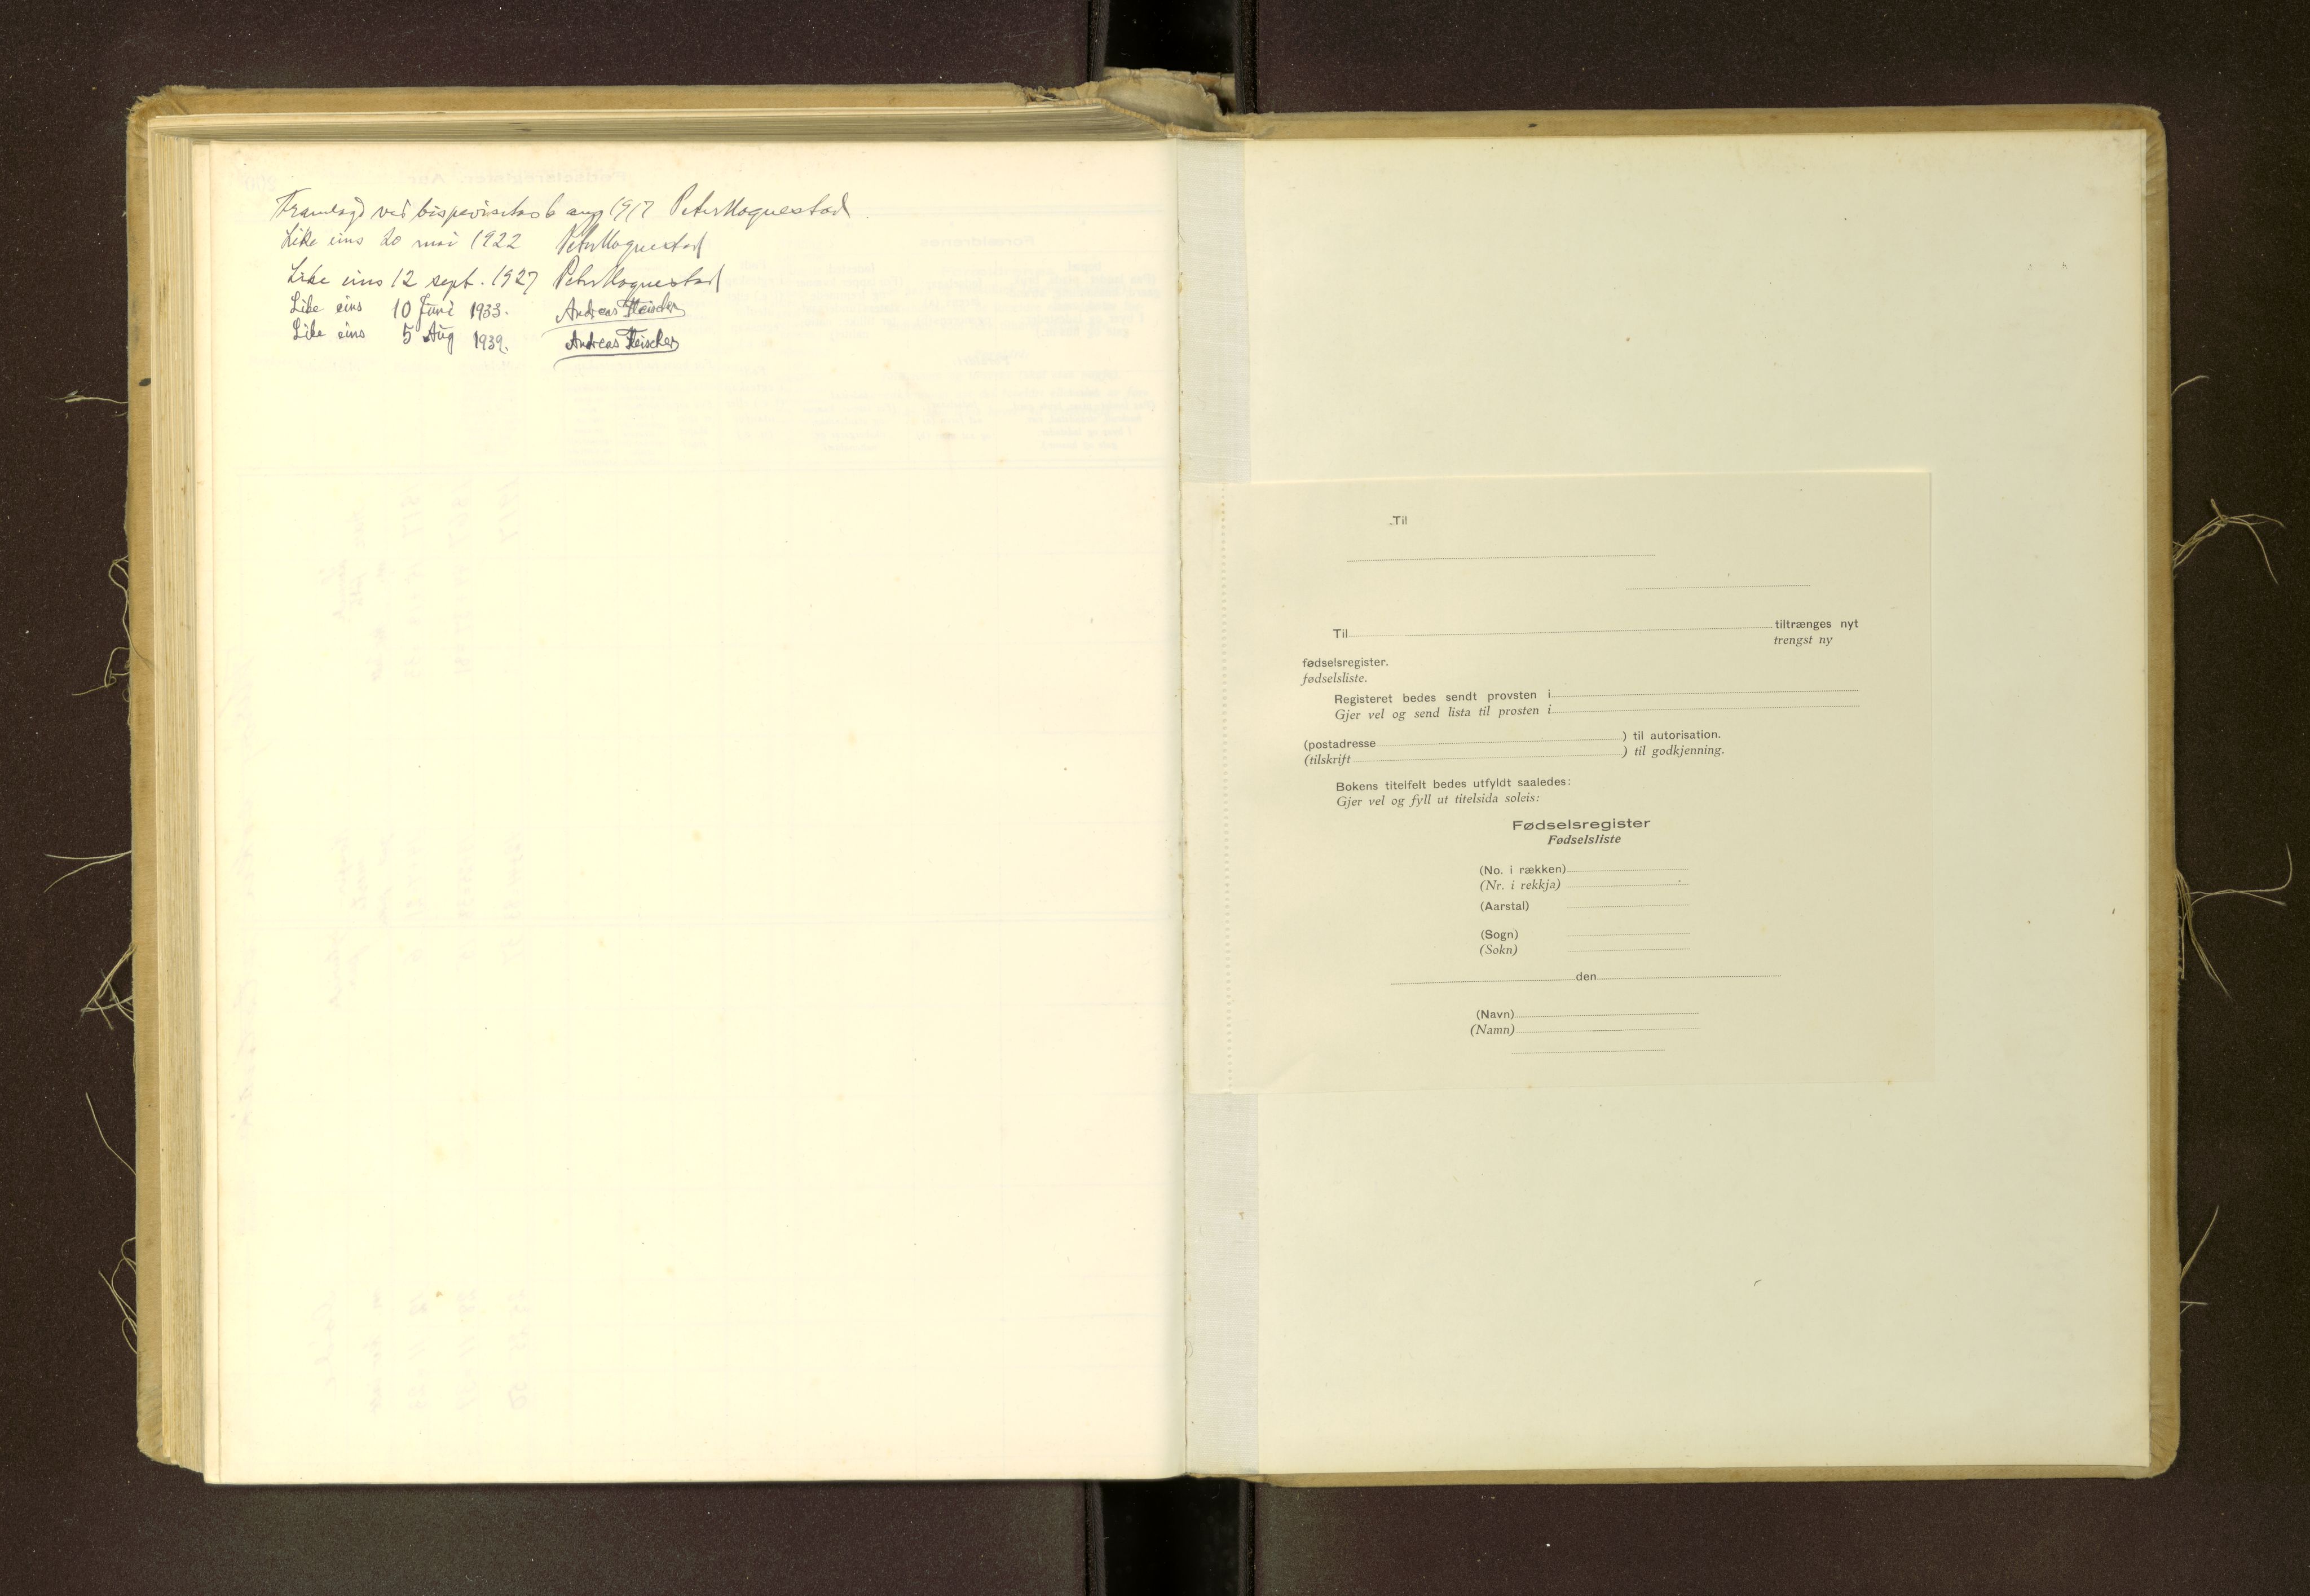 Framlagd ved bispevisitas 6 aug 1917 Peter Hognestad
Like eins 20 mai 1922 Peter Hognestad
Like eins 12 sept. 1927 Peter Hognestad
Like eins 10 Juni 1933. Andreas Fleischer
Like eins 5 Aug 1939. Andreas Fleischer
Til
Til tiltrænges nyt
trengst ny
fødselsregister.
fødselsliste.
Registeret bedes sendt provsten i
Gjer vel og send lista til prosten i
(postadresse ) til autorisation.
(tilskrift ) til godkjenning.
Bokens titelfelt bedes utfyldt saaledes:
Gjer vel og fyll ut titelsida soleis:
Fødselsregister
Fødselsliste
(No. i rækken)
(Nr. i rekkja)
(Aarstal)
(Sogn)
(Sokn)
den
(Navn)
(Namn)